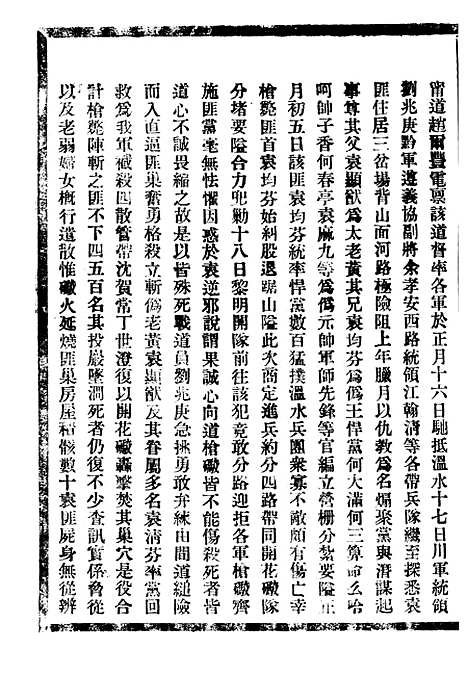 甯道趙爾豐電禀該道督率各軍於正月十六日馳抵溫水十七日川軍統領
劉兆庚黔軍遵義協副將余孝安西路統領江翰清等各帶兵隊繼至探悉袁
匪住居三岔場背山面河路極險阻上年臘月以仇教爲名煽聚黨與潛謀起
事尊其父袁顯猷爲太老黃其兄袁均芬爲僞王悍黨何大滿何三算命么哈
呵帥子香何春亭袁麻九等爲僞元帥軍師先鋒等官編立營柵分紮要隘正
月初五日該匪袁均芬統率悍黨數百猛撲溫水兵團衆寡不敵頗有傷亡幸
槍斃匪首袁均芬始糾股退踞山隘此次商定進兵約分四路帶同開花礮隊
分堵要隘合力兜勦十八日黎明開隊前往該犯竟敢分路迎拒各軍槍礮齊
施匪黨毫無怯懼因惑於袁逆邪說謂果誠心向道槍礮皆不能傷殺死者皆
道心不誠畏縮之故是以皆殊死戰道員劉兆庚急挑勇敢弁練由間道縋險
而入直逼匪巢奮勇格殺立斬僞老黃袁顯猷及其眷屬多名袁清芬率黨回
救爲我軍截殺四散管帶沈賀常丁世澄復以開花礮轟擊焚其巢穴是役合
計槍斃陣斬之匪不下四五百名其投巖墜澗死者仍復不少查訊實係脅從
以及老弱婦女概行遣散惟礮火延燒匪巢房屋枯骸數十袁匪屍身無從辨